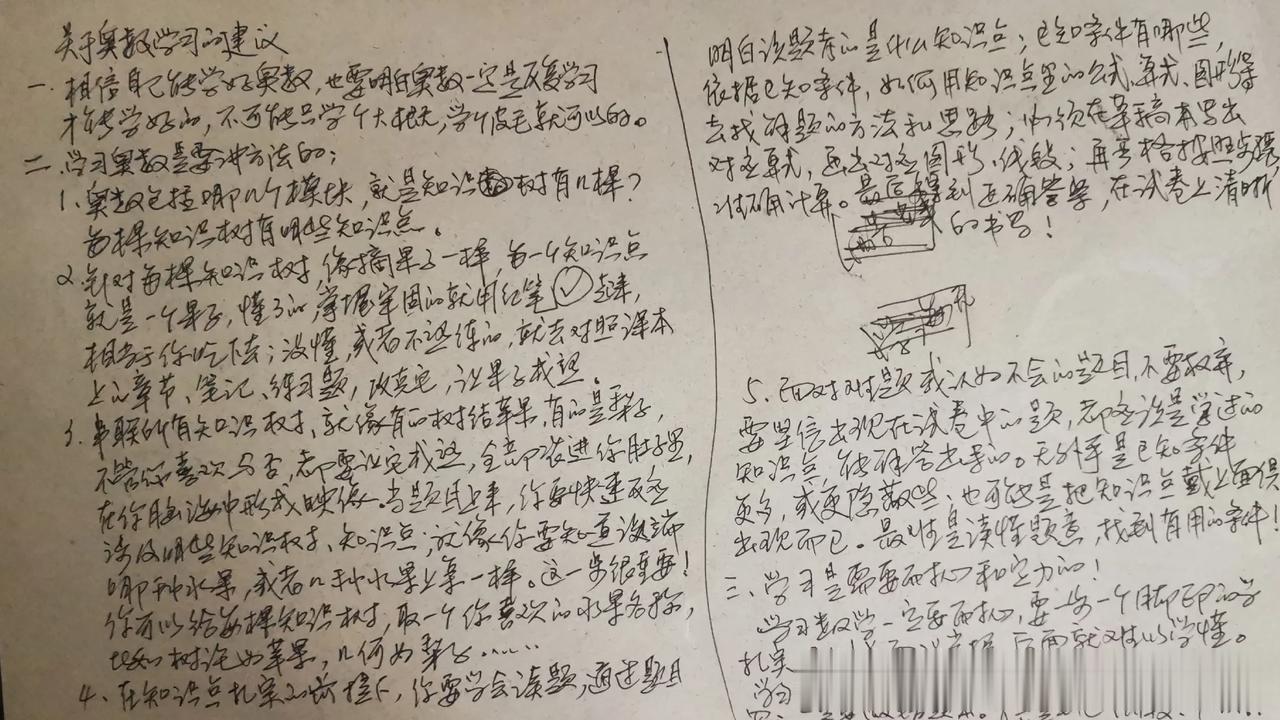 关于奥数学习的建议
一、相信自己能学好奥数,也要明白奥数一定是反复学习
才能学好的,不可能只学个大概,学个皮毛就可以的。
二、学习奥数是要讲方法的:
1、奥数包括哪几个模块,就是知识树有几棵?
每棵知识树有哪些知识点。
2、针对每棵知识树,像摘果子一样,每一个知识点
就是一个果子,懂了的,掌握牢固的就用红笔✓起来,
相当于你吃下去;没懂,或者不熟练的,就去对照课本
上的章节、笔记、练习题,攻克它,让果子成熟。
3、串联所有知识树,就像有的树结苹果,有的是梨子,
不管你喜欢与否,都要让它成熟,全部落进你肚子里,
在你脑海中形成映像。当题目上来,你要快速反应
涉及哪些知识树、知识点;这像你要知道该端
哪种水果,或者几种水果上桌一样。这一步很重要!
你可以给每棵知识树,取一个你喜欢的水果名称,
比如 为苹果,几何为梨子……
4、在知识点扎实的前提下,你要学会读题,通过题目
明白该题考的是什么知识点;已知条件有哪些,
依据已知条件,如何用知识点里的公式、算式、图形等
去找解题的方法和思路;必须在草稿本写出
对应算式,画出对应图形、线段;再严格按照步骤
准确计算。最后得到正确答案,在试卷上清晰
的书写!
5、面对难题或认为不会的题目,不要放弃,
要坚信出现在试卷中的题,都应该是学过的
知识点,能解答出来的。无外乎是已知条件
更多,或更隐蔽些,也可能是把知识点戴上面具
出现而已。最 是读懂题意,找到有用的条件!
三、学习是需要耐心和定力的!
学习数学一定要耐心,要一步一个脚印的学
扎实 后面就难以学懂。
学习